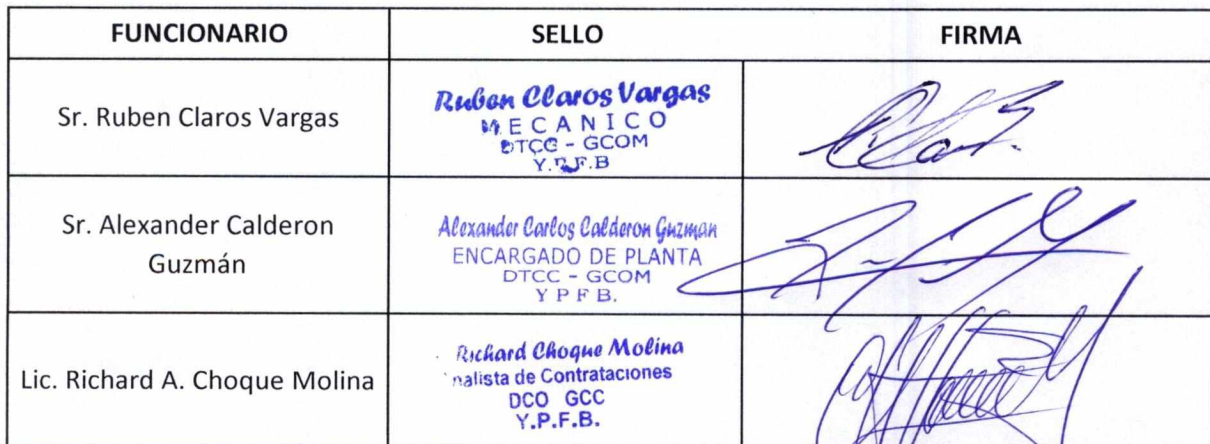 FUNCIONARIO SELLO FIRMA
Sr. Ruben Claros Vargas
Ruben Claros Vargas
MECANICO
DTCC - GCOM
Y.P.F.B
Sr. Alexander Calderon
Guzmán
Alexander Carlos Calderon Guzman
ENCARGADO DE PLANTA
DTCC - GCOM
Y P F B.
Lic. Richard A. Choque Molina
Richard Choque Molina
nalista de Contrataciones
DCO GCC
Y.P.F.B.